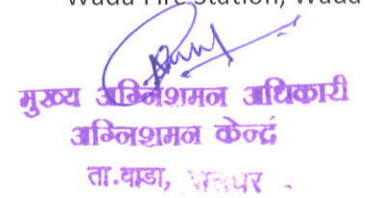 Wada Fire Station, Wada
मुख्य अग्निशमन अधिकारी
अग्निशमन केन्द्रं
ता.वाडा, पालघर .